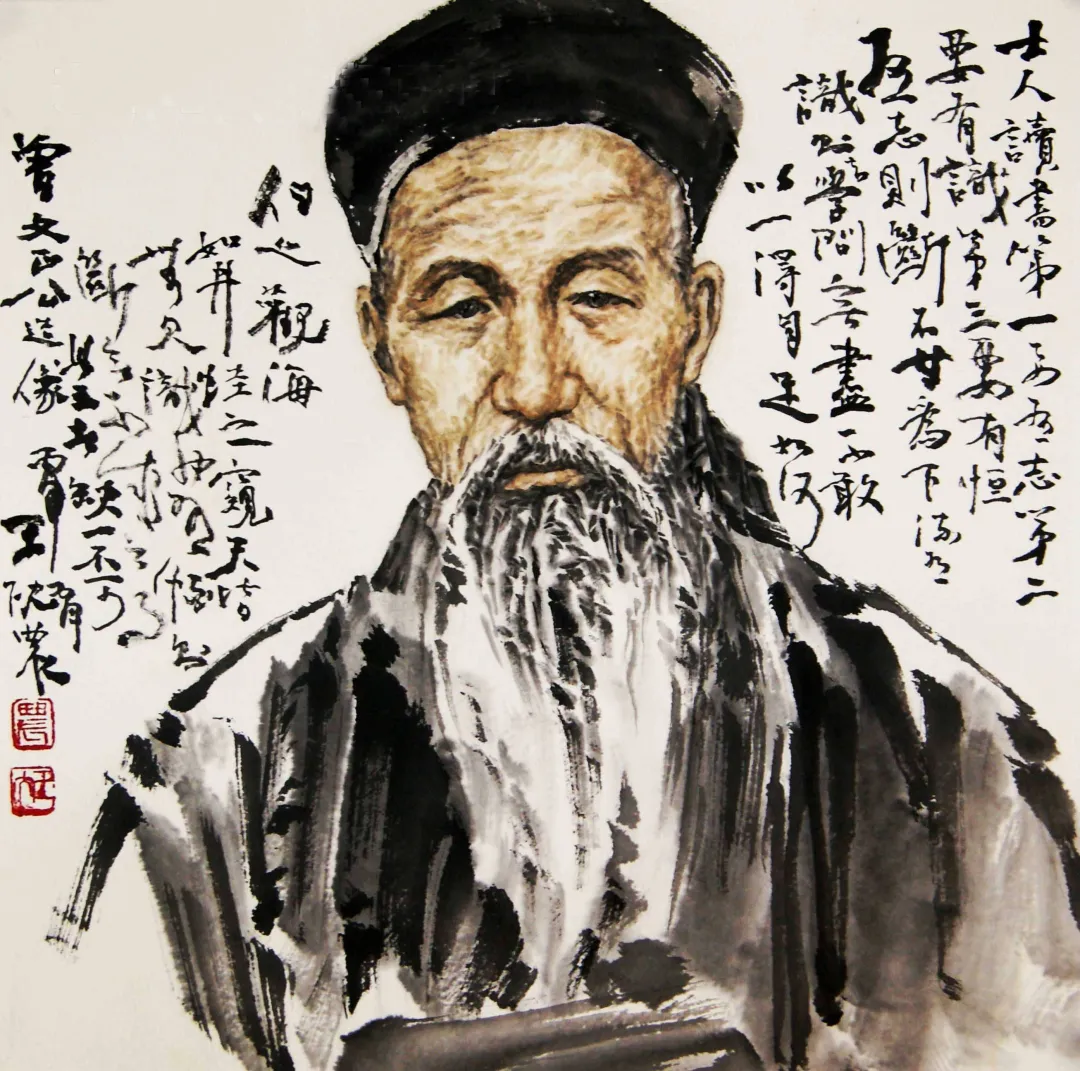 士人讀書第一要有志第二
要有識第三要有恒
有志則斷不甘為下流有
識則知學問無盡不敢
以一得自足如河
伯之觀海
如井蛙之窺天皆
無見識也有恆則
斷無不成之事
此三者缺一不可
曾文正公造像
農